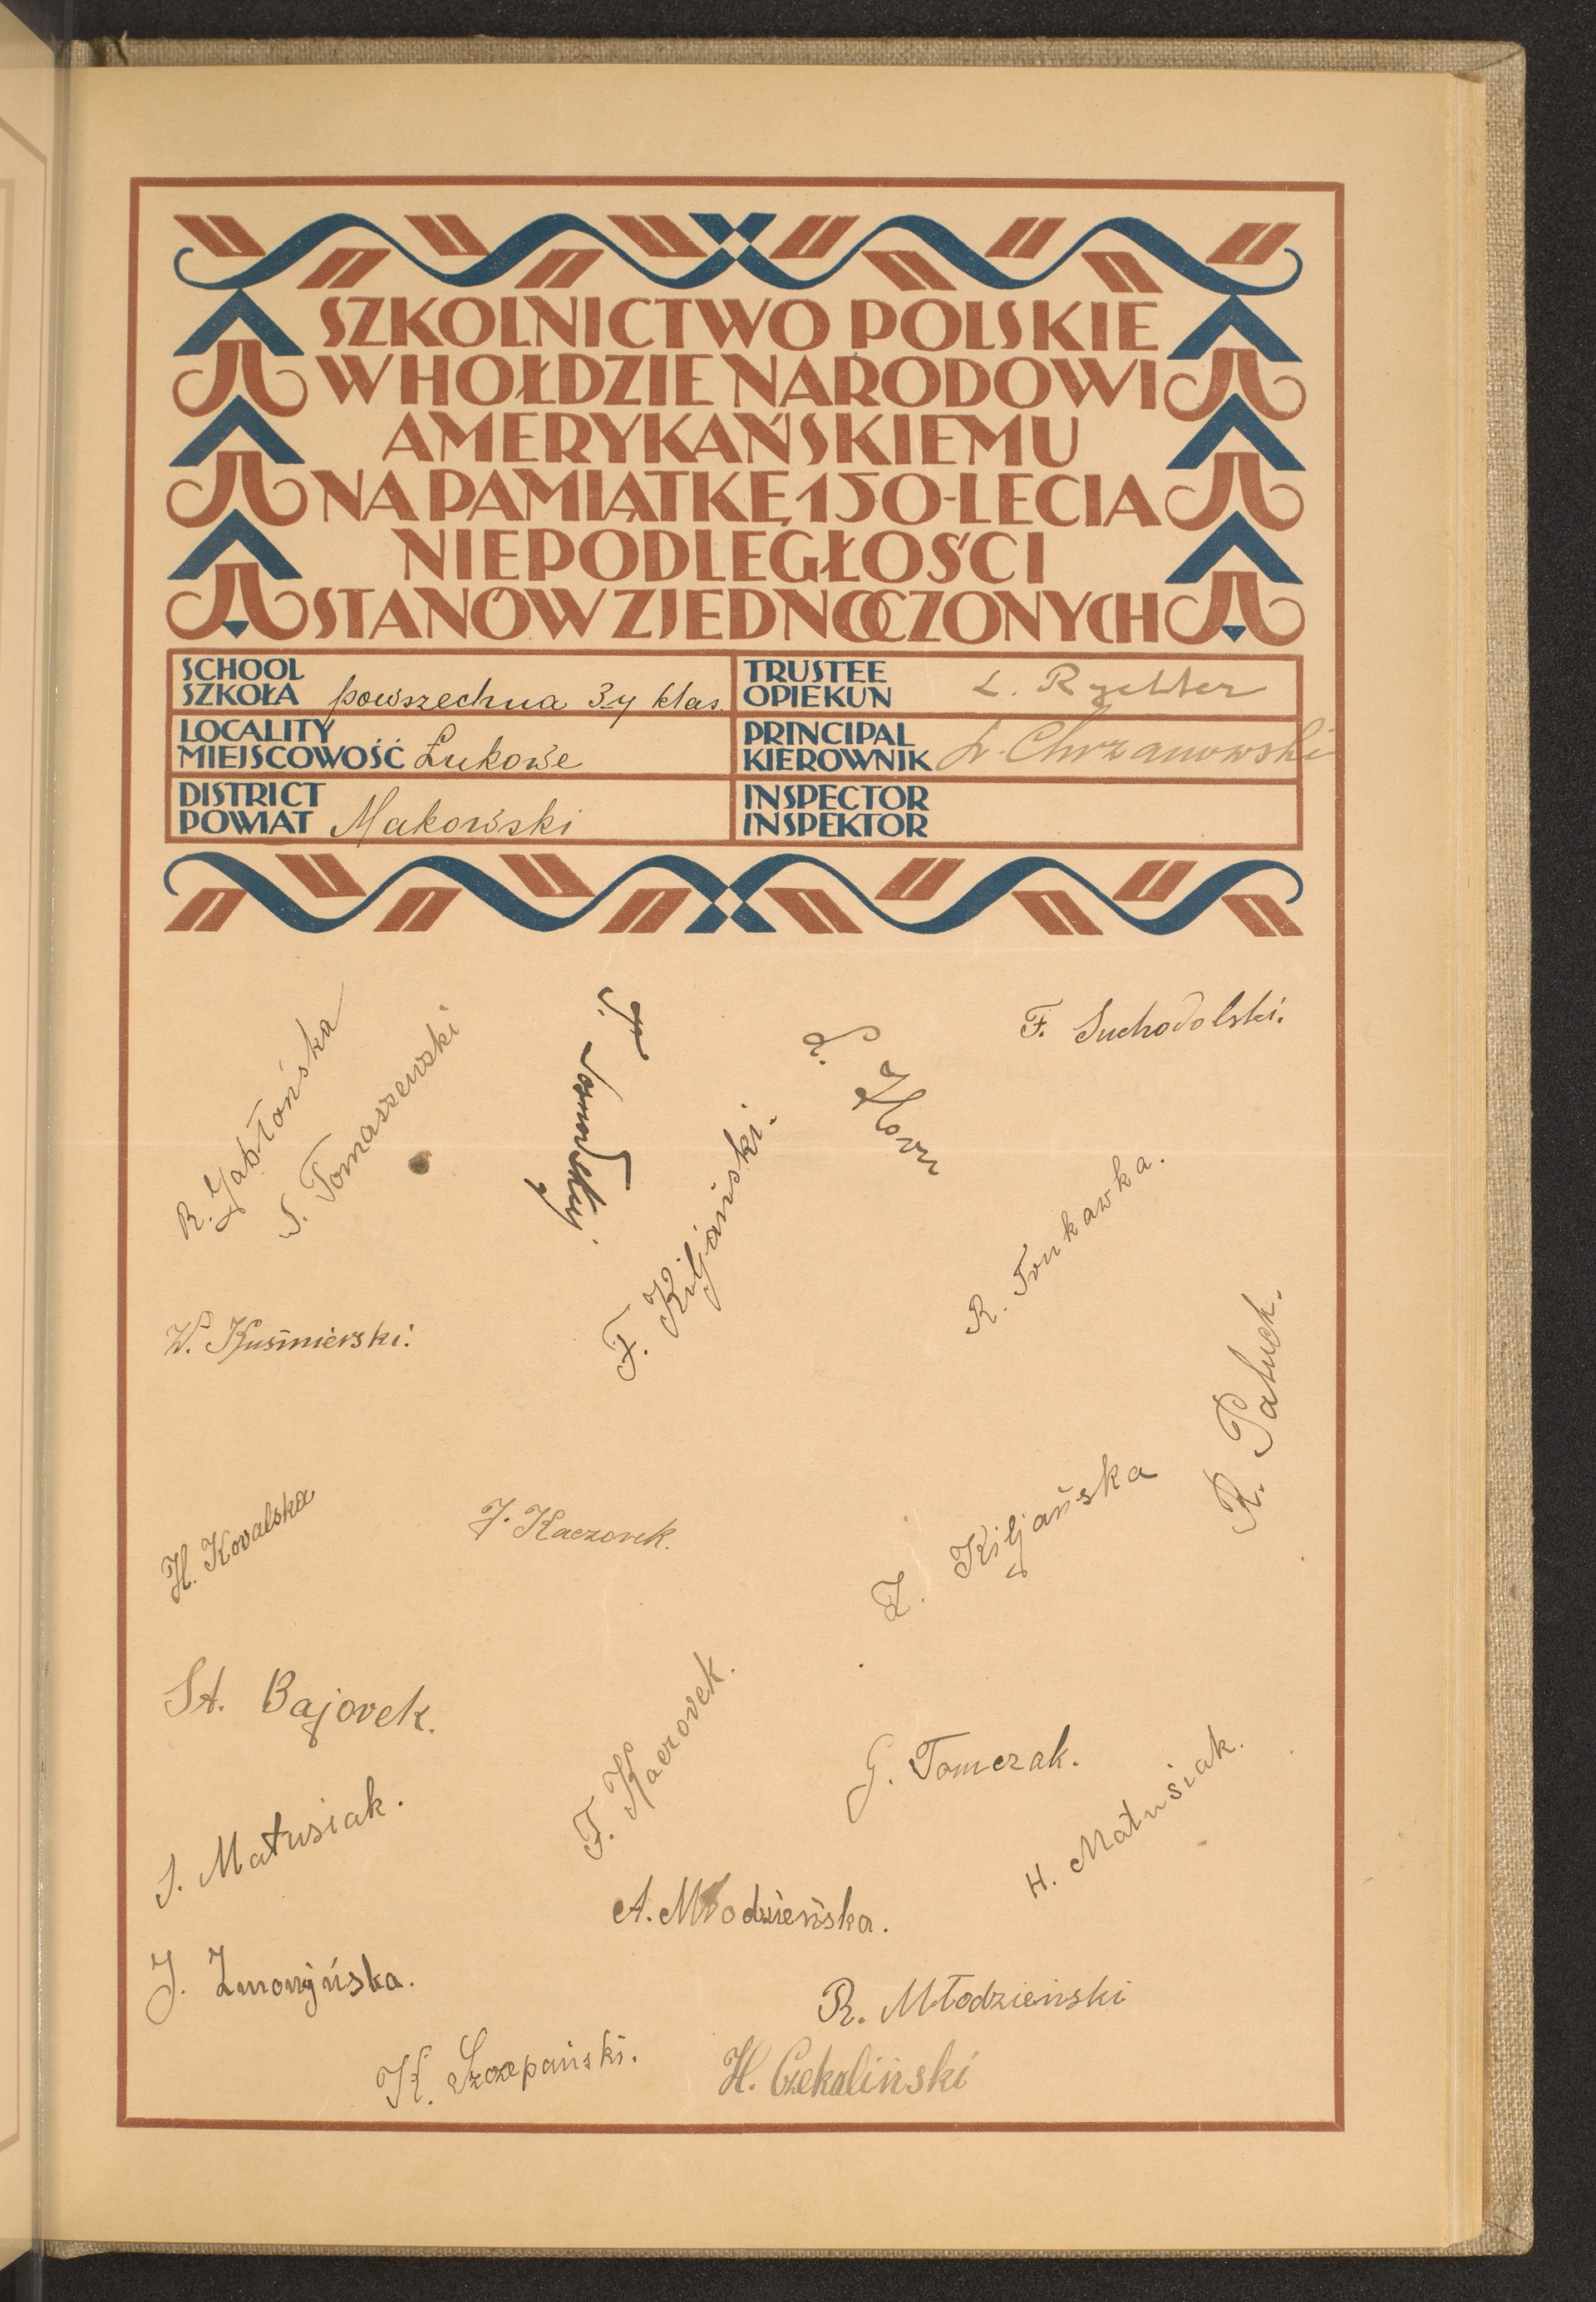 SZKOLNICTWO POLSKIE
W HOŁDZIE NARODOWI
AMERYKAŃSKIEMU
NA PAMIĄTKĘ 150-LECIA
NIEPODLEGŁOŚCI
STANÓW ZJEDNOCZONYCH
SCHOOL
SZKOŁA powszechna 3-y klas.
TRUSTEE
OPIEKUN L. Rychter
LOCALITY
MIEJSCOWOŚĆ Łukowe
PRINCIPAL
KIEROWNIK Chrzanowski
DISTRICT
POWIAT Makowski
INSPECTOR
INSPEKTOR
R. Jabłońska
S. Tomaszewski
F. Kiljański.
F. Suchodolski.
R.
W. Kuśmierski.
R. Pałuch.
H. Kovalska
J. Kaczorek.
Z. Kiljańska
St. Bajorek.
F. Kaczorek.
G. Tomczak.
S. Matusiak.
H. Matusiak.
A. Młodzieńska.
J.
R. Młodzieński
K. Szczepański.
H. Czekaliński